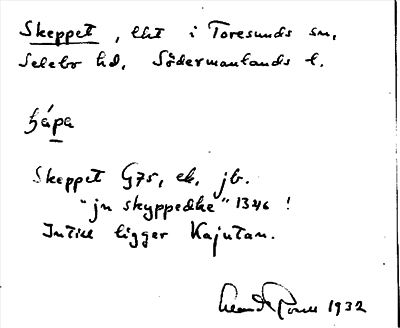 Skeppet, lht i Toresunds sn,
Selebo hd, Södermanlands l.
Skeppet G75, ek, jb.
"jn skyppedke" 1346 !
Intill ligger Kajutan.
1932